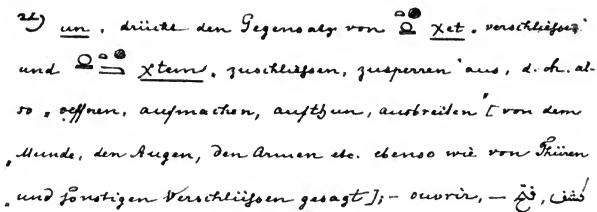 un, drückt den Gegensatz von χet „verschliessen“
und χtem „zuschliessen, zusperren“ aus, d. h. al-
so „oeffnen, aufmachen, aufthun, ausbreiten“ [von dem
„Munde, den Augen, den Armen etc. ebenso wie von Thüren
„und sonstigen Verschlüssen gesagt]; — ouvrir, — فتح, كشف